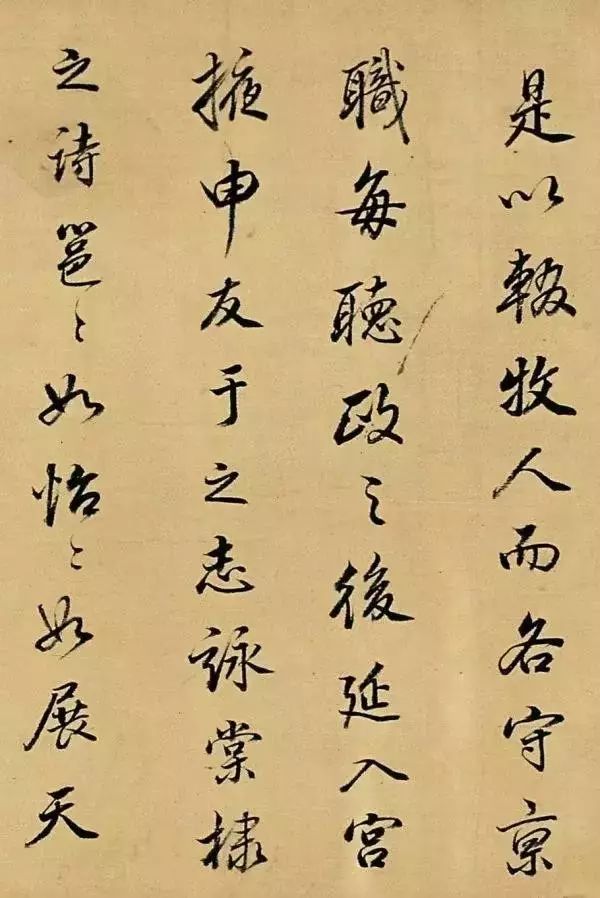 是以輟牧人而各守京
職每聴政之後延入宮
掖申友于之志詠棠棣
之詩邕〻如怡〻如展天